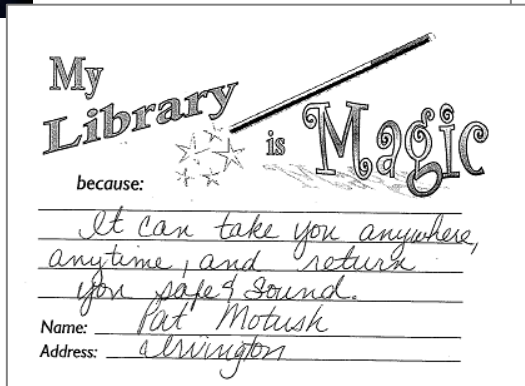 My
Library
is Magic
because:
It can take you anywhere,
anytime, and return
you safe & sound.
Name: Pat Motush
Address: Irvington